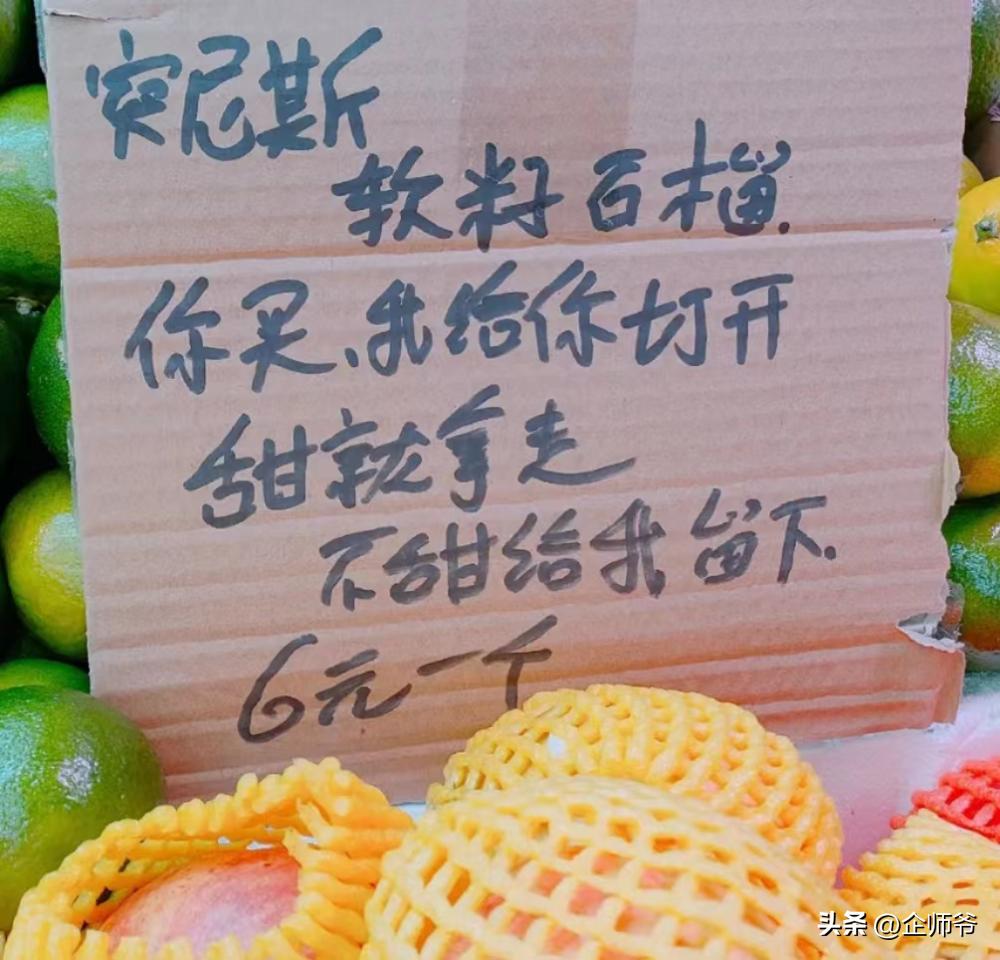 突尼斯
软籽石榴.
你买、我给你切开
甜就拿走
不甜给我留下.
6元一个
头条 @企师爷